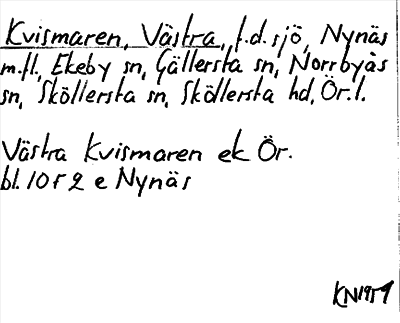 Kvismaren, Västra, f.d. sjö, Nynäs
m.fl., Ekeby sn, Gällersta sn, Norrbyås
sn, Sköllersta sn, Sköllersta hd, Ör. l.
Västra Kvismaren ek Ör.
bl. 10 f 2 e Nynäs
KN1959